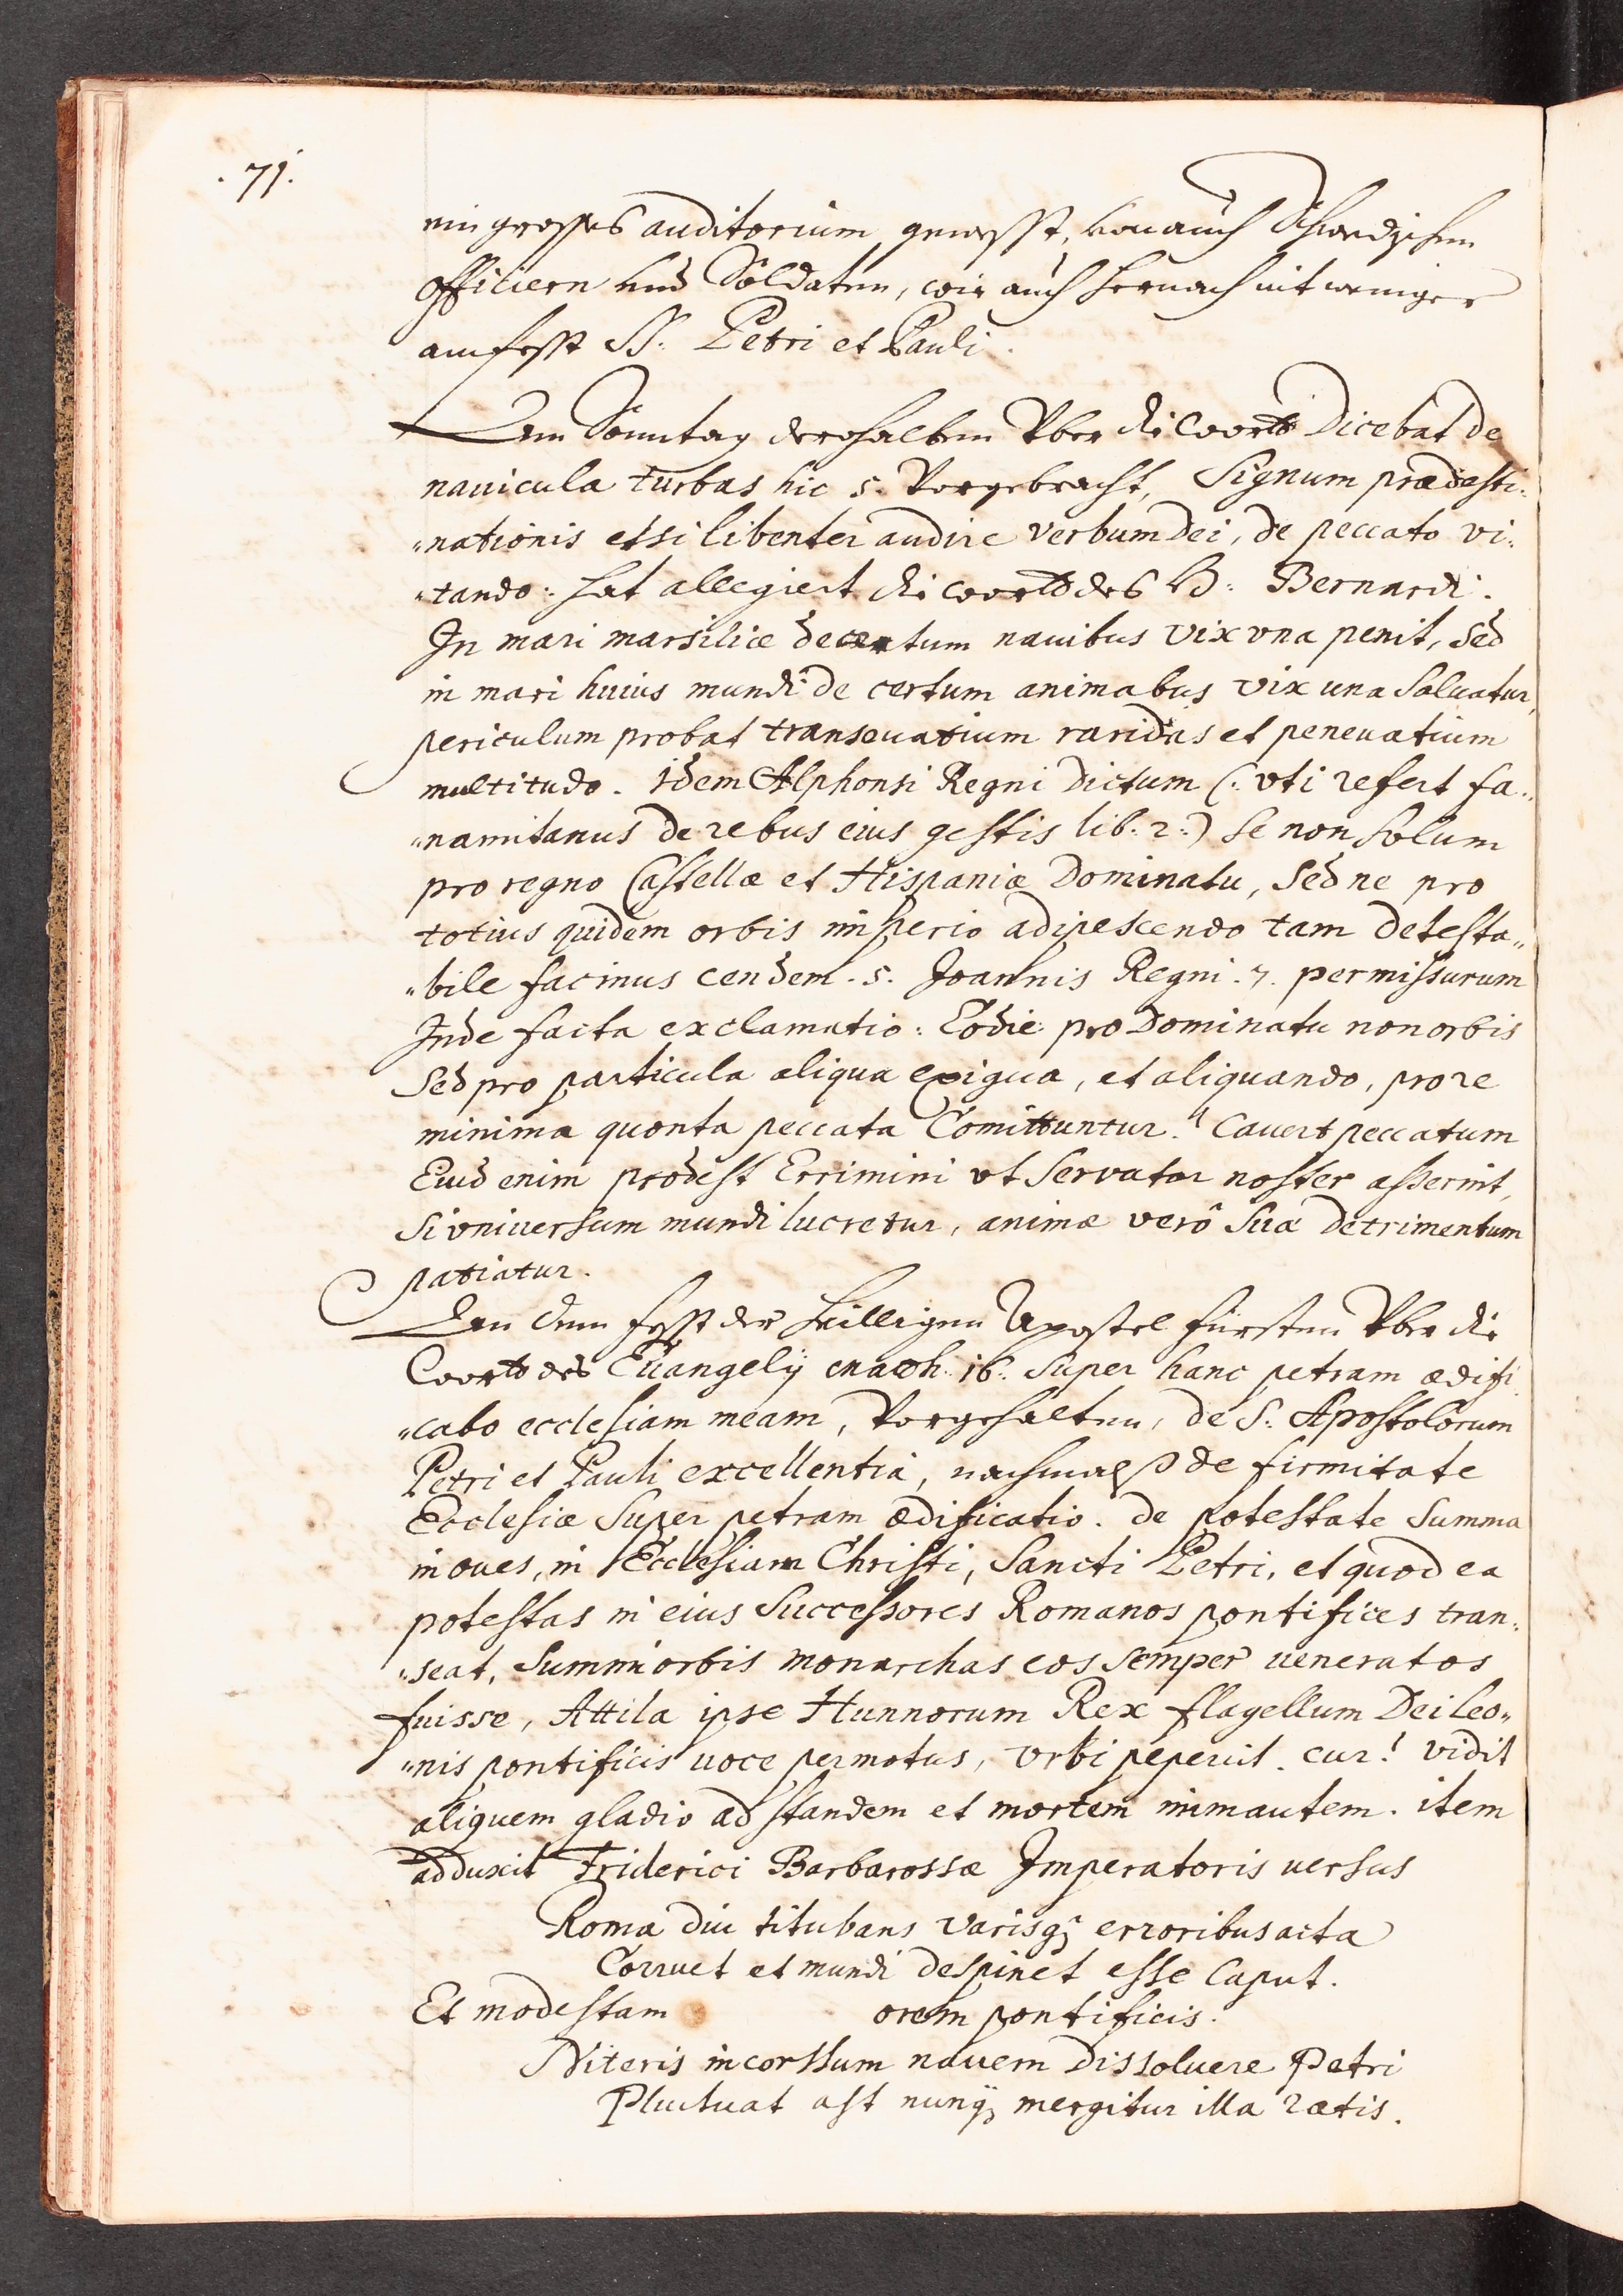 . 71.
ein grosses auditorium gewesst, von auch Schwedischen
officiern und Soldaten, wie auch hernach nit weniger
am fesst SS. Petri et Pauli.
Den Sonntag derohalben Vber die Wort Dicebat de
nauicula turbas hic 5. Vorgebracht, Signum prædesti:
"nationis etsi libenter audire verbum Dei, de peccato vi:
"tando: hat allegiert die Wort des H: Bernardi.
In mari marsiliæ decertum nauibus vix vna penit, sed
in mari huius mundi de certum animabus vix una saluatur,
periculum probat transeuatium raridas et peneuatium
multitudo. idem Alphonsi Regni Dictum (: vti refert fa:"
"namitanus de rebus eius gestis lib: 2:) se non solum
pro regno Castellæ et Hispaniæ Dominatu, sed ne pro
totius quidem orbis imsperio adipescendo tam detesta"
"bile facinus cendem. 5. Joannis Regni. 7. permissurum
Inde facta exclamatio: Eodie pro Dominatu non orbis
sed pro particula aliqua exigua, et aliquando, pro re
minima quonta peccata Comittuntur.! Cauert peccatum
Euid enim prodest Errimini vt servator noster asserint,
si vniuersum mundi lucretur, animæ verô suæ detrimentum
patiatur.
Den Dem fesst der heilligen Apostel fürsten Vber die
Wort des Euangelij math: 16: super hanc petram ædifi
"cabo ecclesiam meam, Vorgehalten, de S: Apostolorum
Petri et Pauli excellentia, nachmalß de firmitate
Ecclesiæ super petram ædificatio. de potestate summa
in oues, in Ecclesiam Christi, Sancti Petri, et quod ea
potestas in eius successores Romanos pontifices tran:
"seat, summi orbis monarchas eos semper ueneratos
fuisse, Attila ipse Hunnorum Rex flagellum Dei leo"
"nis pontificis uoce permotus, vrbi peperit. cur! vidit
aliquem gladio ad standem et mortem mimautem. item
adduxit Friderici Barbarossæ Imperatoris uersus
Roma diu titubans varisq erroribus acta
Corruet et mundi despinet esse Caput.
Et modestam orem pontificis.
Niteris incorssum nauem Dissoluere Petri
Pluctuat ast nunq mergitur illa rætis.